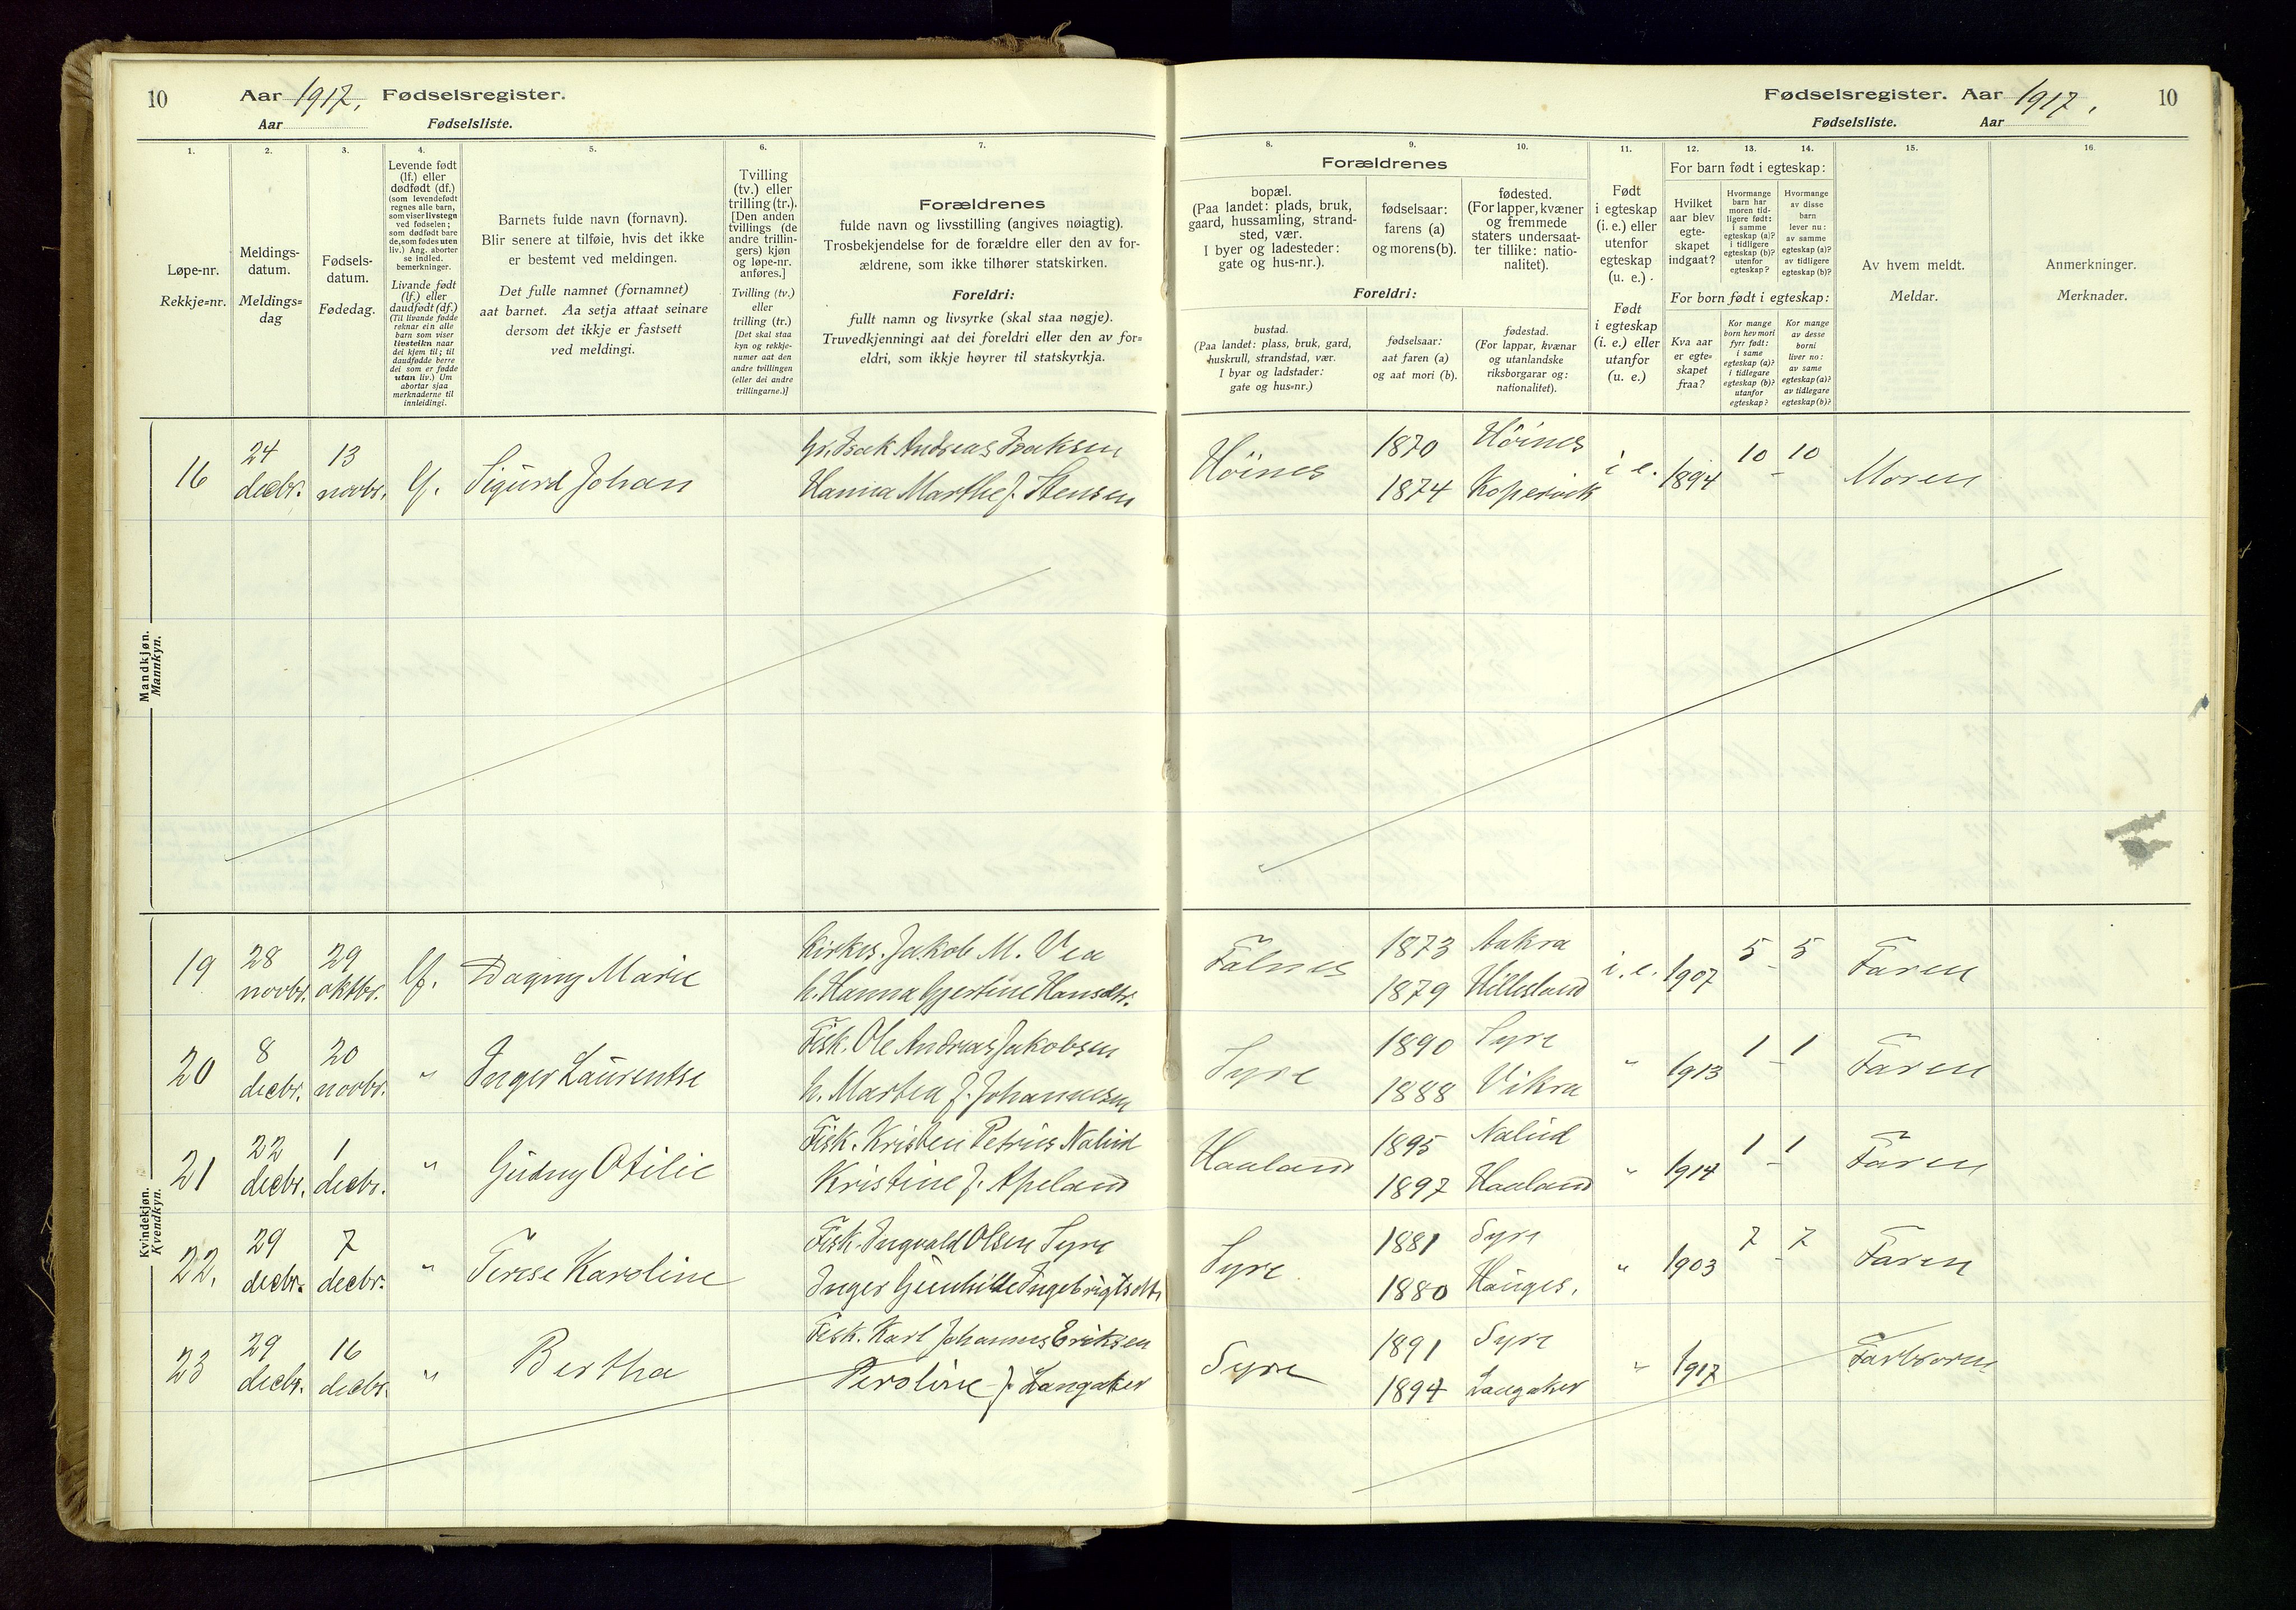 10
Aar 1917. Fødselsregister.
Aar Fødselsliste.
Fødselsregister. Aar 1917.
10
Fødselsliste. Aar
1.
2.
3.
4.
5.
6.
7.
Løpe-nr.
Rekkje=nr.
Meldings-
datum.
Meldings=
dag
Fødsels-
datum.
Fødedag.
Levende født
(lf.) eller
dødfødt (df.)
(som levendefødt
regnes alle barn,
som viser livstegn
ved fødselen;
som dødfødt bare
de, som fødes uten
liv.) Ang. aborter
se indled.
bemerkninger.
Livande født
(lf.) eller
daudfødt (df.)
(Til livande fødde
reknar ein alle
barn som viser
livsteikn naar
dei kjem til; til
daudfødde berre
dei som er fødde
utan liv.) Um
abortar sjaa
merknaderne til
innleidingi.
Barnets fulde navn (fornavn).
Blir senere at tilføie, hvis det ikke
er bestemt ved meldingen.
Det fulle namnet (fornamnet)
aat barnet. Aa setja attaat seinare
dersom det ikkje er fastsett
ved meldingi.
Tvilling
(tv.) eller
trilling (tr.).
[Den anden
tvillings (de
andre trillin-
gers) kjøn
og løpe-nr.
anføres.]
Tvilling (tv.)
eller
trilling (tr.)
[Det skal staa
kyn og rekkje-
numer aat den
andre tvillingen
(eller dei andre
trillingarne.)]
Forældrenes
fulde navn og livsstilling (angives nøiagtig).
Trosbekjendelse for de forældre eller den av for-
ældrene, som ikke tilhører statskirken.
Foreldri:
fullt namn og livsyrke (skal staa nøgje).
Truvedkjenningi aat dei foreldri eller den av for=
eldri, som ikkje høyrer til statskyrkja.
8.
9.
10.
11.
12.
13.
14.
15.
16.
Forældrenes
bopæl.
(Paa landet: plads, bruk,
gaard, hussamling, strand-
sted, vær.
I byer og ladesteder:
gate og hus-nr.).
fødselsaar:
farens (a)
og morens (b).
fødested.
(For lapper, kvæner
og fremmede
staters undersaat-
ter tillike: natio-
nalitet).
Foreldri:
bustad.
(Paa landet: plass, bruk, gard,
huskrull, strandstad, vær.
I byar og ladstader:
gate og hus=nr.)
fødselsaar:
aat faren (a)
og aat mori (b).
fødestad.
(For lappar, kvænar
og utanlandske
riksborgarar og:
nationalitet).
Født
i egteskap
(i. e.) eller
utenfor
egteskap
(u. e.).
Født
i egteskap
(i. e.) eller
utanfor
(u. e.)
For barn født i egteskap:
Hvilket
aar blev
egte-
skapet
indgaat?
Hvormange
barn har
moren tid-
ligere født:
i samme
egteskap (a)?
i tidligere
egteskap (b)?
utenfor
egteskap?
Hvormange
av disse
barn
lever nu:
av samme
egteskap (a)?
av tidligere
egteskap (b)?
For born født i egteskap:
Kva aar
er egte=
skapet
fraa?
Kor mange
born hev mori
fyrr født:
i same
egteskap (a)?
i tidlegare
egteskap (b)?
utanfor
egteskap?
Kor mange
av desse
borni
liver no:
av same
egteskap (a)?
av tidlegare
egteskap (b)?
Av hvem meldt.
Meldar.
Anmerkninger.
Merknader.
Mandkjøn.
Mannkyn.
16
24
decbr.
13
novbr.
lf.
Sigurd Johan
Isak Andreas Isaksen
Hanna Marthe f. Stensen
Höines
1870
1874
Höines
Kopervik
i e.
1894
10 - 10
Moren
Kvindekjøn.
Kvendkyn.
19
28
novbr.
29
oktbr.
lf.
Dagny Marie
Kirkes. Jakob M. Vea
h. Hanna Gjertine Hansdtr.
Falnes
1873
1879
Aakra
Hillesland
i. e.
1907
5 - 5
Faren
20
8
decbr.
20
novbr.
"
Inger Laurentse
Fisk. Ole Andreas Jakobsen
h. Martea f. Johannesen
Syre
1890
1888
Syre
Vikra
"
1913
1 - 1
Faren
21
22
decbr.
1
decbr.
"
Gudny Otilie
Fisk. Kristen Petrius Nalud
Kristine f. Apeland
Haaland
1895
1897
Nalud
Haaland
"
1914
1 - 1
Faren
22.
29
decbr.
7
decbr.
"
Terese Karoline
Fisk. Ingvald Olsen Syre
Inger Gunhilde Ingebrigtsdtr.
Syre
1881
1880
Syre
Hauges.
"
1903
7 - 7
Faren
23
29
decbr.
16
decbr.
"
Bertha
Fisk. Karl Johannes Eriksen
Peroline f. Langaker
Syre
1891
1894
Syre
Langaker
"
1917
Farbroren